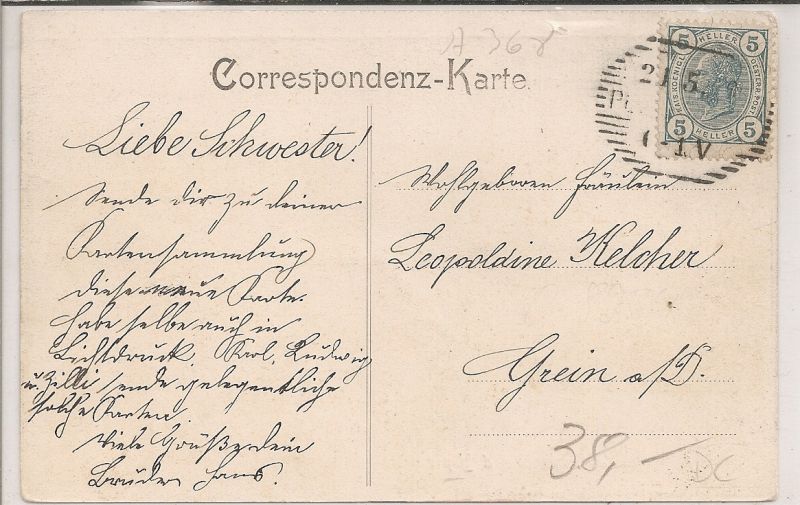 A 368
Correspondenz-Karte.
5 HELLER 5
KAIS. KOENIGL. OESTERR. POST
5 HELLER 5
21 5
6-1V
Liebe Schwester!
Sende dir zu deiner
Kartensammlung
diese neue Karte.
Habe selbe auch in
Lichtdruck. Karl, Ludwig
u. Zilli sende gelegentlich
solche Karten.
Viele Grüße dein
Bruder Hans.
Wohlgeboren Fräulein
Leopoldine Kelcher
Grein a/D.
38,—
DC